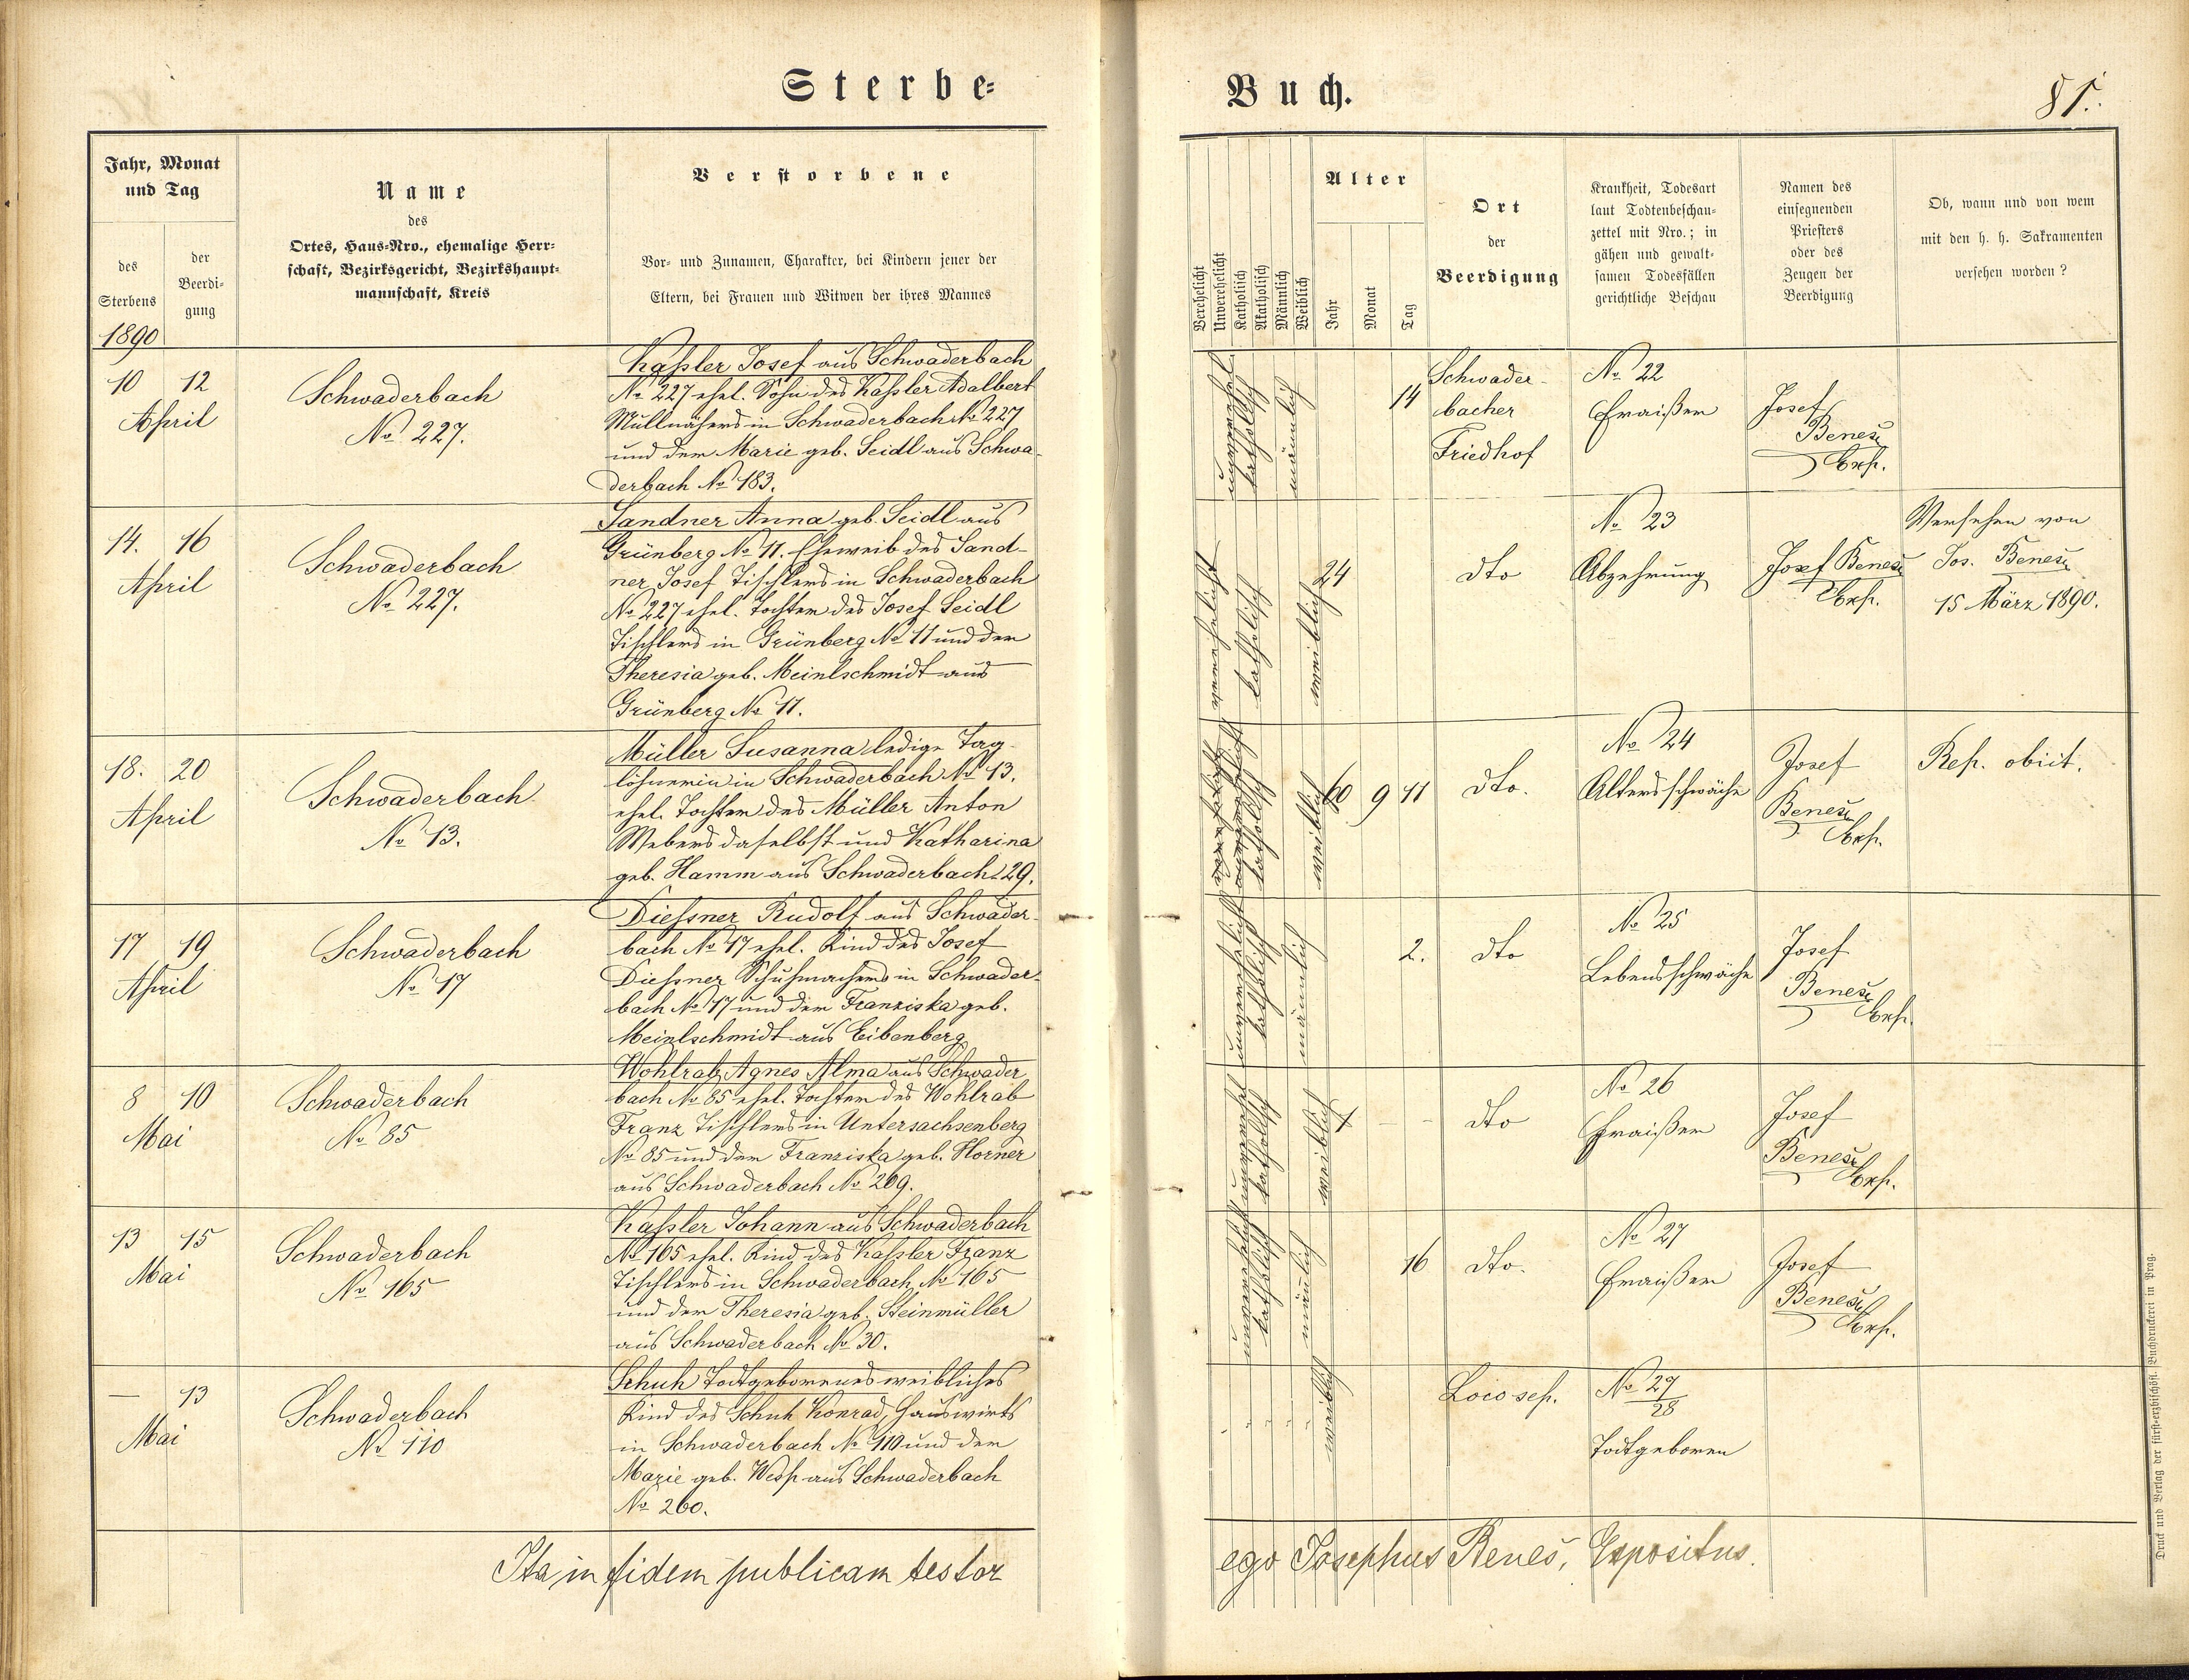 Sterbe-
Buch.
81.
Jahr, Monat
und Tag
des
Sterbens
der
Beerdi-
gung
1890
Name
des
Ortes, Haus-Nro., ehemalige Herr-
schaft, Bezirksgericht, Bezirkshaupt-
mannschaft, Kreis
Verstorbene
Vor- und Zunamen, Charakter, bei Kindern jener der
Eltern, bei Frauen und Witwen der ihres Mannes
Verehelicht
Unverehelicht
Katholisch
Akatholisch
Männlich
Weiblich
Alter
Jahr
Monat
Tag
Ort
der
Beerdigung
Krankheit, Todesart
laut Todtenbeschau-
zettel mit Nro.; in
gähen und gewalt-
samen Todesfällen
gerichtliche Beschau
Namen des
einsegnenden
Priesters
oder des
Zeugen der
Beerdigung
Ob, wann und von wem
mit den h. h. Sakramenten
versehen worden?
10 12
April
Schwaderbach
No 227.
Kaßler Josef aus Schwaderbach
No 227 ehel. Sohn des Kaßler Adalbert
Müllnähers in Schwaderbach No 227
und der Marie geb. Seidl aus Schwa-
derbach No 183.
unverehel
katholisch
männlich
14
Schwader-
bacher
Friedhof
No 22
Fraißen
Josef
Beneš
Exp.
14. 16
April
Schwaderbach
No 227.
Sandner Anna geb. Seidl aus
Grünberg No 11. Eheweib des Sand-
ner Josef Tischlers in Schwaderbach
No 227 ehel. Tochter des Josef Seidl
Tischlers in Grünberg No 11 und der
Theresia geb. Meinlschmidt aus
Grünberg No 11.
verehelicht
katholisch
weiblich
24
dto
No 23
Abzehrung
Josef Beneš
Exp.
Versehen von
Jos. Beneš
15 März 1890.
18. 20
April
Schwaderbach
No 13.
Müller Susanna ledige Tag-
löhnerin in Schwaderbach No 13.
ehel. Tochter des Müller Anton
Webers daselbst und Katharina
geb. Hamm aus Schwaderbach 129.
katholisch
weiblich
60 9 11
dto.
No 24
Altersschwäche
Josef
Beneš
Exp.
Rep. obiit.
17 19
April
Schwaderbach
No 17
Dießner Rudolf aus Schwader-
bach No 17 ehel. Kind des Josef
Dießner Schuhmachers in Schwader-
bach No 17 und der Franziska geb.
Meinlschmidt aus Eibenberg
unverehelicht
katholisch
männlich
2.
dto
No 25
Lebensschwäche
Josef
Beneš
Exp.
8 10
Mai
Schwaderbach
No 85
Wohlrab Agnes Alma aus Schwader
bach No 85 ehel. Tochter des Wohlrab
Franz Tischlers in Untersachsenberg
No 85 und der Franziska geb. Horner
aus Schwaderbach No 269.
unverehel
katholisch
weiblich
1 - -
dto
No 26
Fraißen
Josef
Beneš
Exp.
13 15
Mai
Schwaderbach
No 165
Kaßler Johann aus Schwaderbach
No 165 ehel. Kind des Kaßler Franz
Tischlers in Schwaderbach No 165
und der Theresia geb. Steinmüller
aus Schwaderbach No 30.
unverehelicht
katholisch
männlich
16
dto.
No 27
Fraißen
Josef
Beneš
Exp.
— 13
Mai
Schwaderbach
No 110
Schuh Todtgeborenes weibliches
Kind des Schuh Konrad, Hauswirts
in Schwaderbach No 110 und der
Marie geb. Wesp aus Schwaderbach
No 260.
weiblich
Loco sep.
No 27
28
Todtgeboren
Ita in fidem publicam testor
ego Josephus Beneš, Expositus.
Druck und Verlag der fürst-erzbischöfl. Buchdruckerei in Prag.